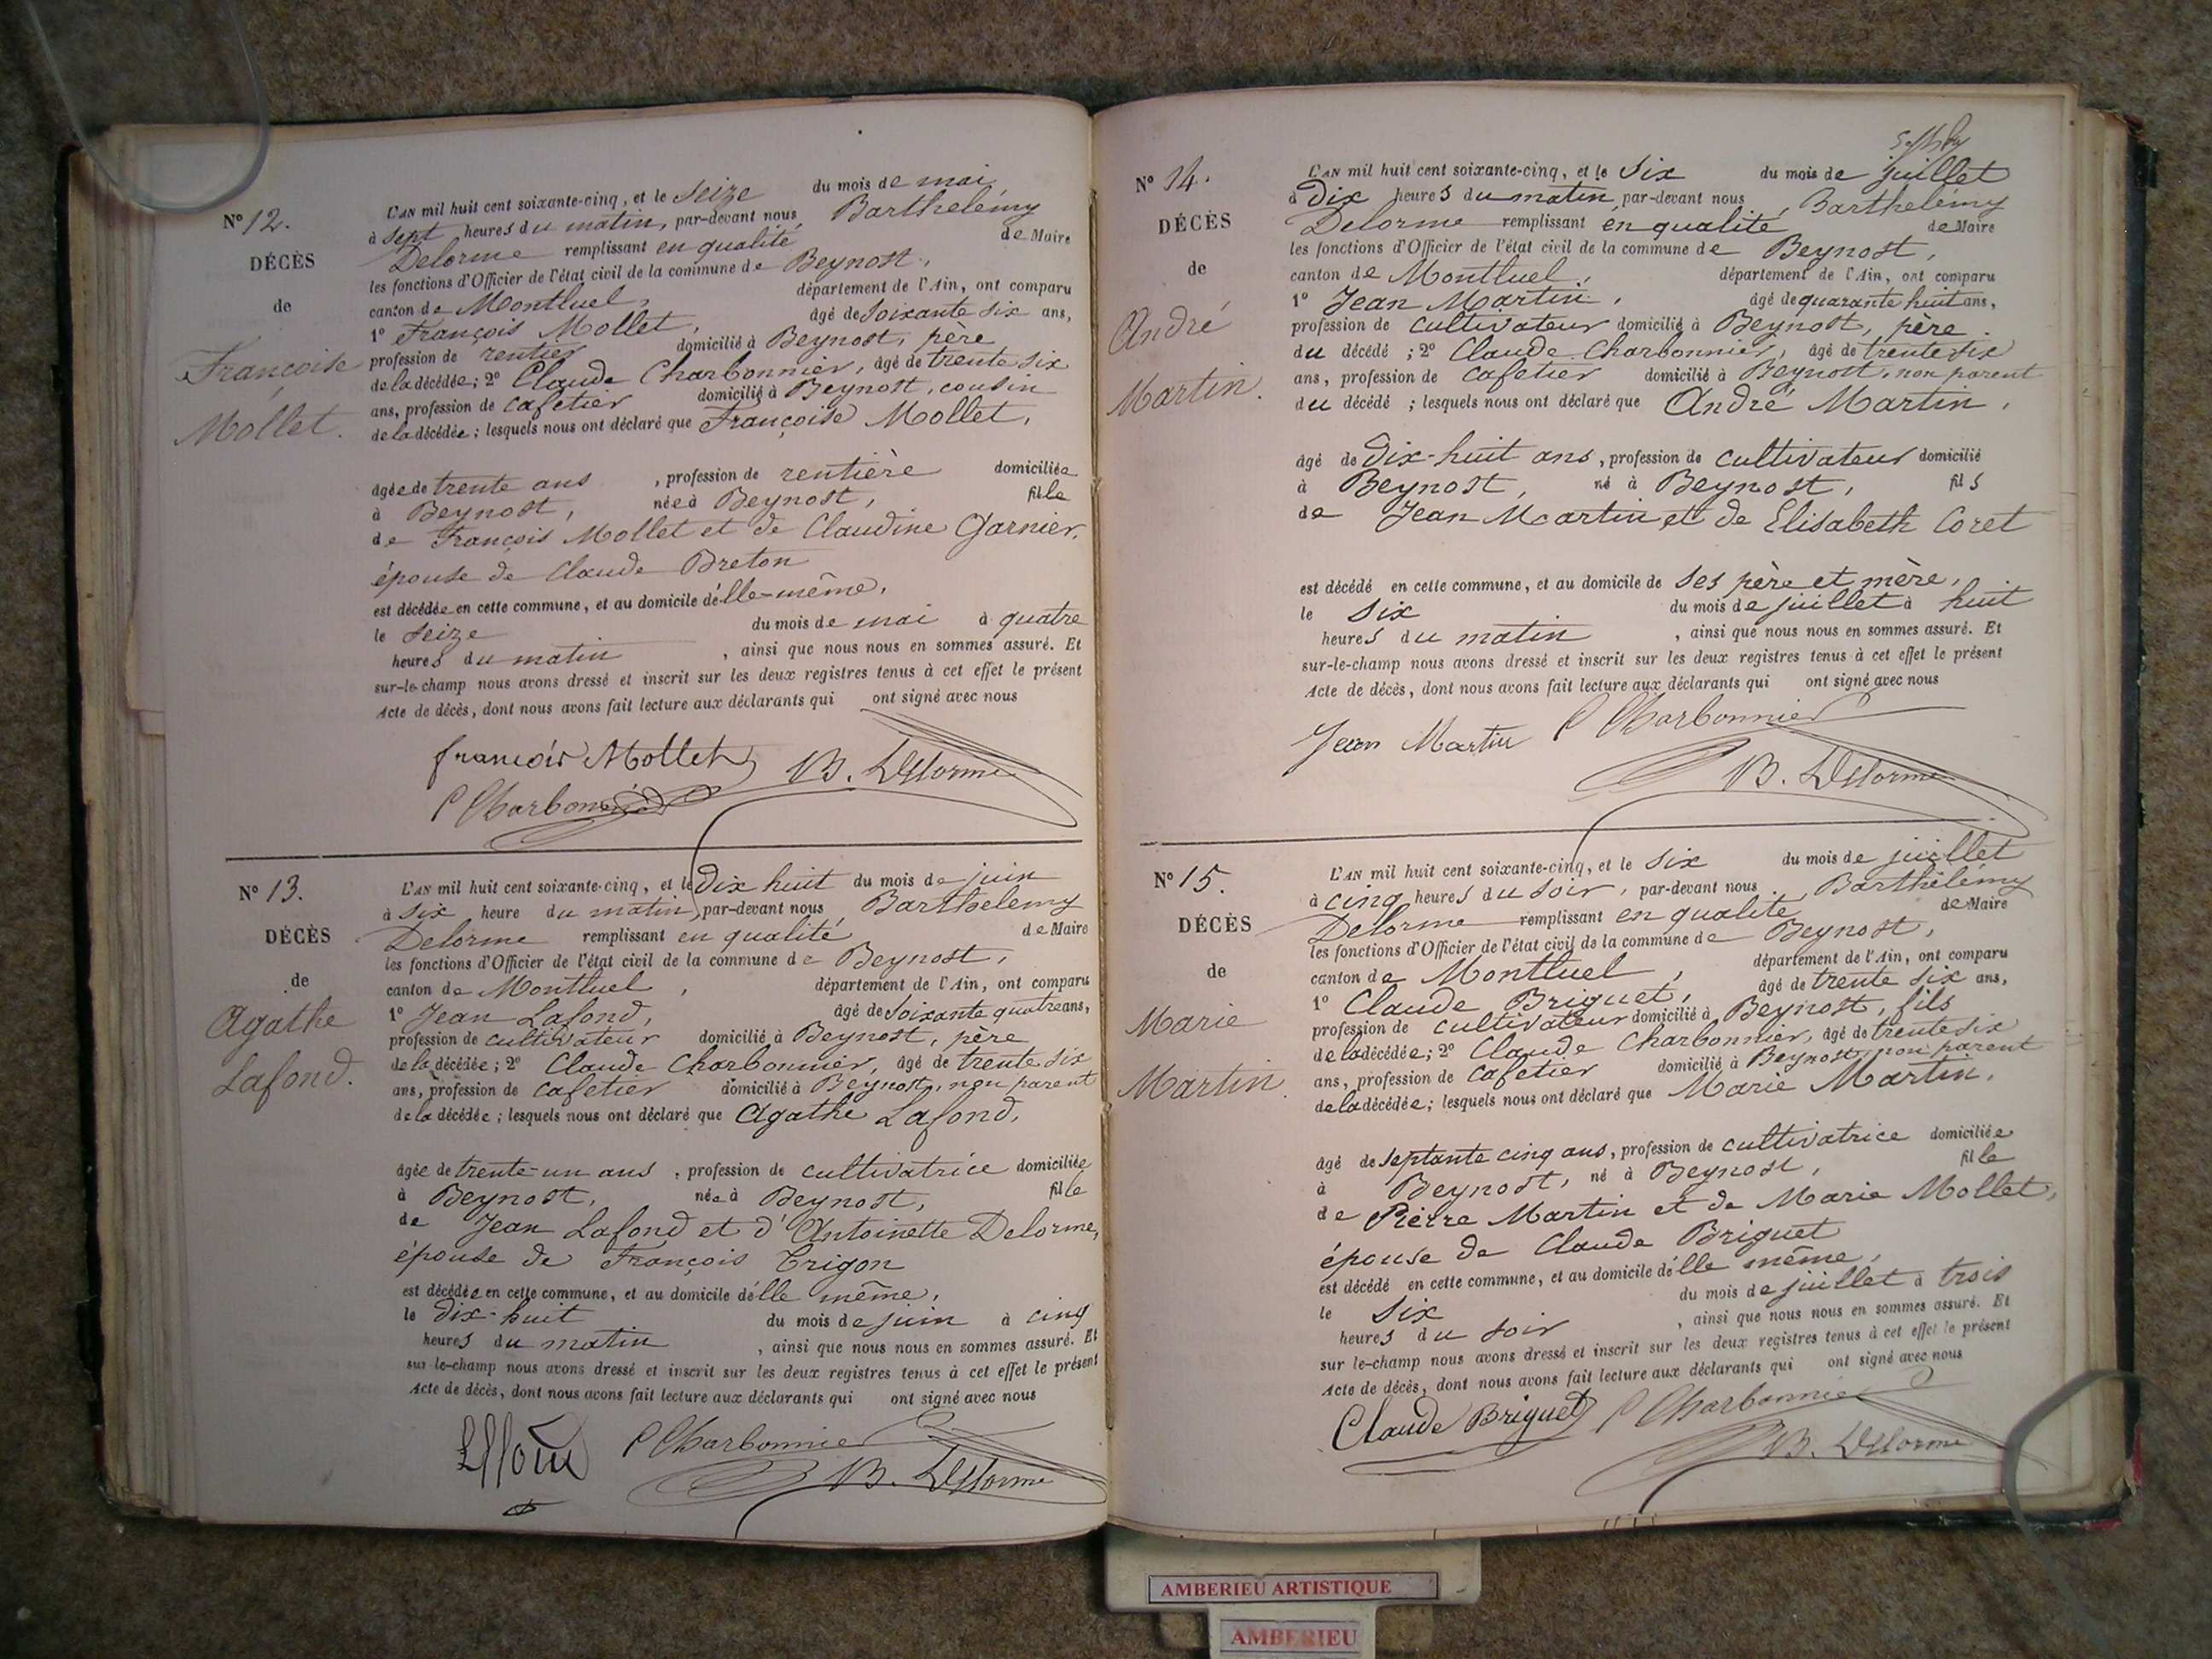 N° 12.
DÉCÈS
de
Françoise
Mollet.
L'AN mil huit cent soixante-cinq, et le Seize du mois de mai
à Sept heures du matin, par-devant nous, Barthelemy
Delorme remplissant en qualité de Maire
les fonctions d'Officier de l'état civil de la commune de Beynost,
canton de Montluel, département de l'Ain, ont comparu
1° François Mollet, âgé de Soixante six ans,
profession de rentier domicilié à Beynost, père
de la décédée ; 2° Claude Charbonnier, âgé de trente six
ans, profession de cafetier domicilié à Beynost, cousin
de la décédée ; lesquels nous ont déclaré que Françoise Mollet,
âgée de trente ans , profession de rentière domiciliée
à Beynost, née à Beynost, fille
de François Mollet et de Claudine Garnier,
épouse de Claude Breton
est décédée en cette commune, et au domicile d'elle-même,
le Seize du mois de mai à quatre
heures du matin , ainsi que nous nous en sommes assuré. Et
sur-le-champ nous avons dressé et inscrit sur les deux registres tenus à cet effet le présent
Acte de décès, dont nous avons fait lecture aux déclarants qui ont signé avec nous
françois Mollet B. Delorme
C Charbonnier
N° 13.
DÉCÈS
de
Agathe
Lafond.
L'AN mil huit cent soixante-cinq, et le Dix huit du mois de juin
à Six heure du matin, par-devant nous, Barthelemy
Delorme remplissant en qualité de Maire
les fonctions d'Officier de l'état civil de la commune de Beynost,
canton de Montluel, département de l'Ain, ont comparu
1° Jean Lafond, âgé de Soixante quatre ans,
profession de cultivateur domicilié à Beynost, père
de la décédée ; 2° Claude Charbonnier, âgé de trente six
ans, profession de cafetier domicilié à Beynost, non parent
de la décédée ; lesquels nous ont déclaré que Agathe Lafond,
âgée de trente-un ans , profession de cultivatrice domiciliée
à Beynost, née à Beynost, fille
de Jean Lafond et d'Antoinette Delorme,
épouse de François Trigon
est décédée en cette commune, et au domicile d'elle même,
le dix-huit du mois de juin à cinq
heures du matin , ainsi que nous nous en sommes assuré. Et
sur-le-champ nous avons dressé et inscrit sur les deux registres tenus à cet effet le présent
Acte de décès, dont nous avons fait lecture aux déclarants qui ont signé avec nous
C Charbonnier
B. Delorme
N° 14.
DÉCÈS
de
André
Martin.
L'AN mil huit cent soixante-cinq, et le Six du mois de juillet
à Dix heures du matin par-devant nous, Barthelémy
Delorme remplissant en qualité de Maire
les fonctions d'Officier de l'état civil de la commune de Beynost,
canton de Montluel, département de l'Ain, ont comparu
1° Jean Martin, âgé de quarante huit ans,
profession de cultivateur domicilié à Beynost, père
du décédé ; 2° Claude Charbonnier, âgé de trente six
ans, profession de cafetier domicilié à Beynost, non parent
du décédé ; lesquels nous ont déclaré que André Martin,
âgé de Dix-huit ans, profession de cultivateur domicilié
à Beynost, né à Beynost, fils
de Jean Martin et de Elisabeth Coret
est décédé en cette commune, et au domicile de ses père et mère,
le Six du mois de juillet à huit
heures du matin , ainsi que nous nous en sommes assuré. Et
sur-le-champ nous avons dressé et inscrit sur les deux registres tenus à cet effet le présent
Acte de décès, dont nous avons fait lecture aux déclarants qui ont signé avec nous
Jean Martin C Charbonnier
B. Delorme
N° 15.
DÉCÈS
de
Marie
Martin.
L'AN mil huit cent soixante-cinq, et le Six du mois de juillet
à cinq heures du soir, par-devant nous, Barthélémy
Delorme remplissant en qualité de Maire
les fonctions d'Officier de l'état civil de la commune de Beynost,
canton de Montluel, département de l'Ain, ont comparu
1° Claude Briguet, âgé de trente six ans,
profession de cultivateur domicilié à Beynost, fils
de la décédée ; 2° Claude Charbonnier, âgé de trente six
ans, profession de cafetier domicilié à Beynost, non parent
de la décédée ; lesquels nous ont déclaré que Marie Martin,
âgé de septante cinq ans, profession de cultivatrice domiciliée
à Beynost, né à Beynost, fille
de Pierre Martin et de Marie Mollet,
épouse de Claude Briguet
est décédé en cette commune, et au domicile d'elle même,
le Six du mois de juillet à trois
heures du soir , ainsi que nous nous en sommes assuré. Et
sur le-champ nous avons dressé et inscrit sur les deux registres tenus à cet effet le présent
Acte de décès, dont nous avons fait lecture aux déclarants qui ont signé avec nous
Claude Briguet C Charbonnier
B. Delorme
AMBERIEU ARTISTIQUE
AMBERIEU